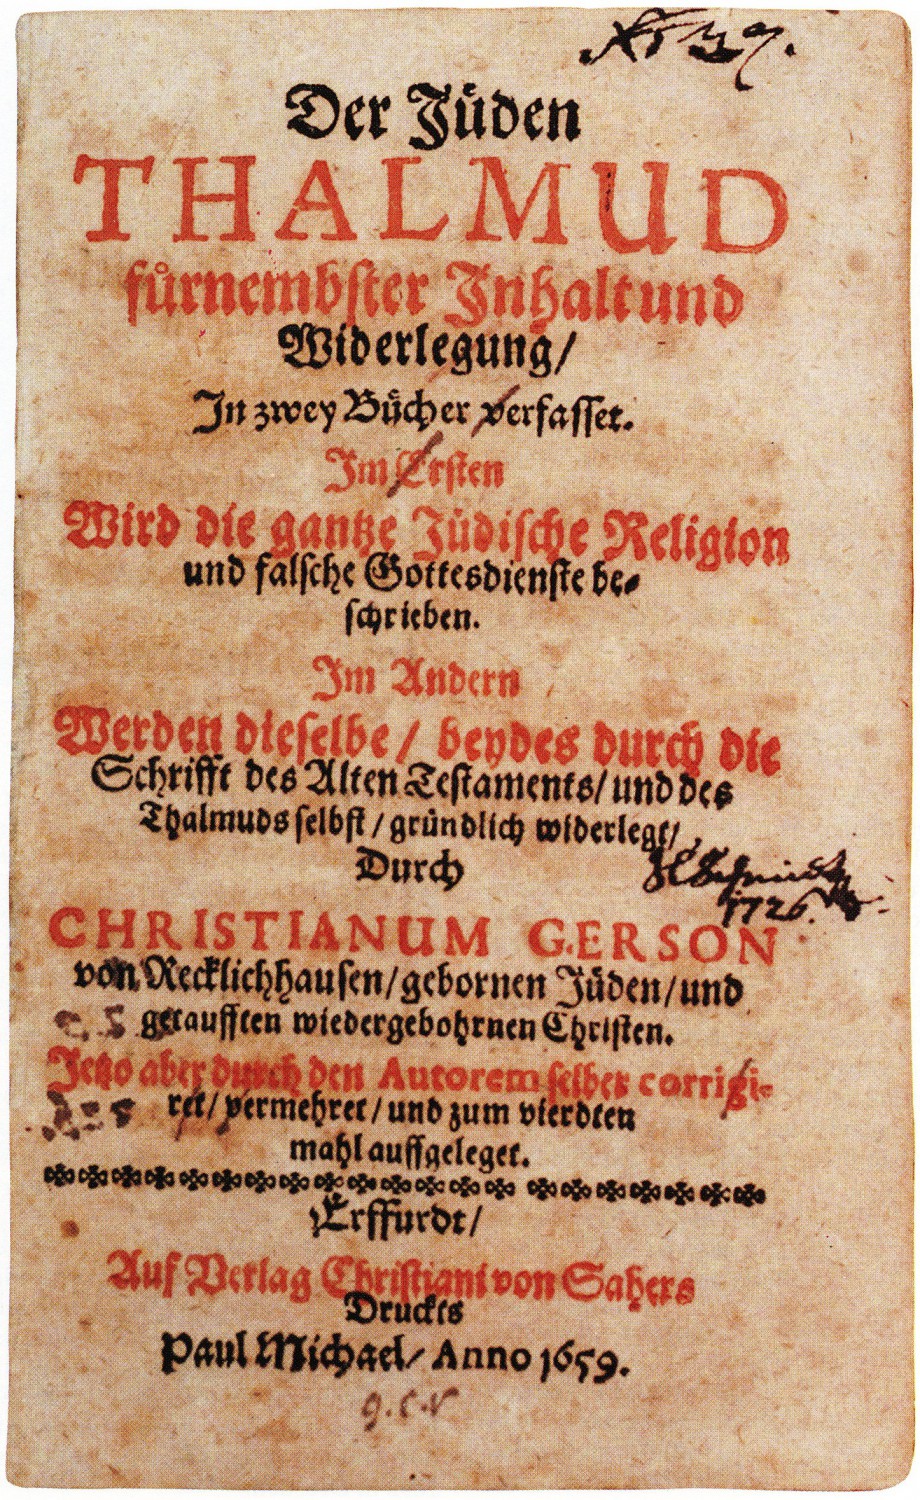 Der Jüden
THALMUD
fürnembster Inhalt und
Widerlegung/
In zwey Bücher verfasset.
Im Ersten
Wird die gantze Jüdische Religion
und falsche Gottesdienste be-
schrieben.
Im Andern
Werden dieselbe/ beydes durch die
Schrifft des Alten Testaments/ und des
Thalmuds selbst/ gründlich widerlegt/
Durch
1726.
CHRISTIANUM GERSON
von Recklichhausen/ gebornen Jüden/ und
getaufften wiedergebohrnen Christen.
Jetzo aber durch den Autorem selber corrigi-
ret/ vermehret/ und zum vierdten
mahl auffgeleget.
Erffurdt/
Auf Verlag Christiani von Sahers
Druckts
Paul Michael/ Anno 1659.